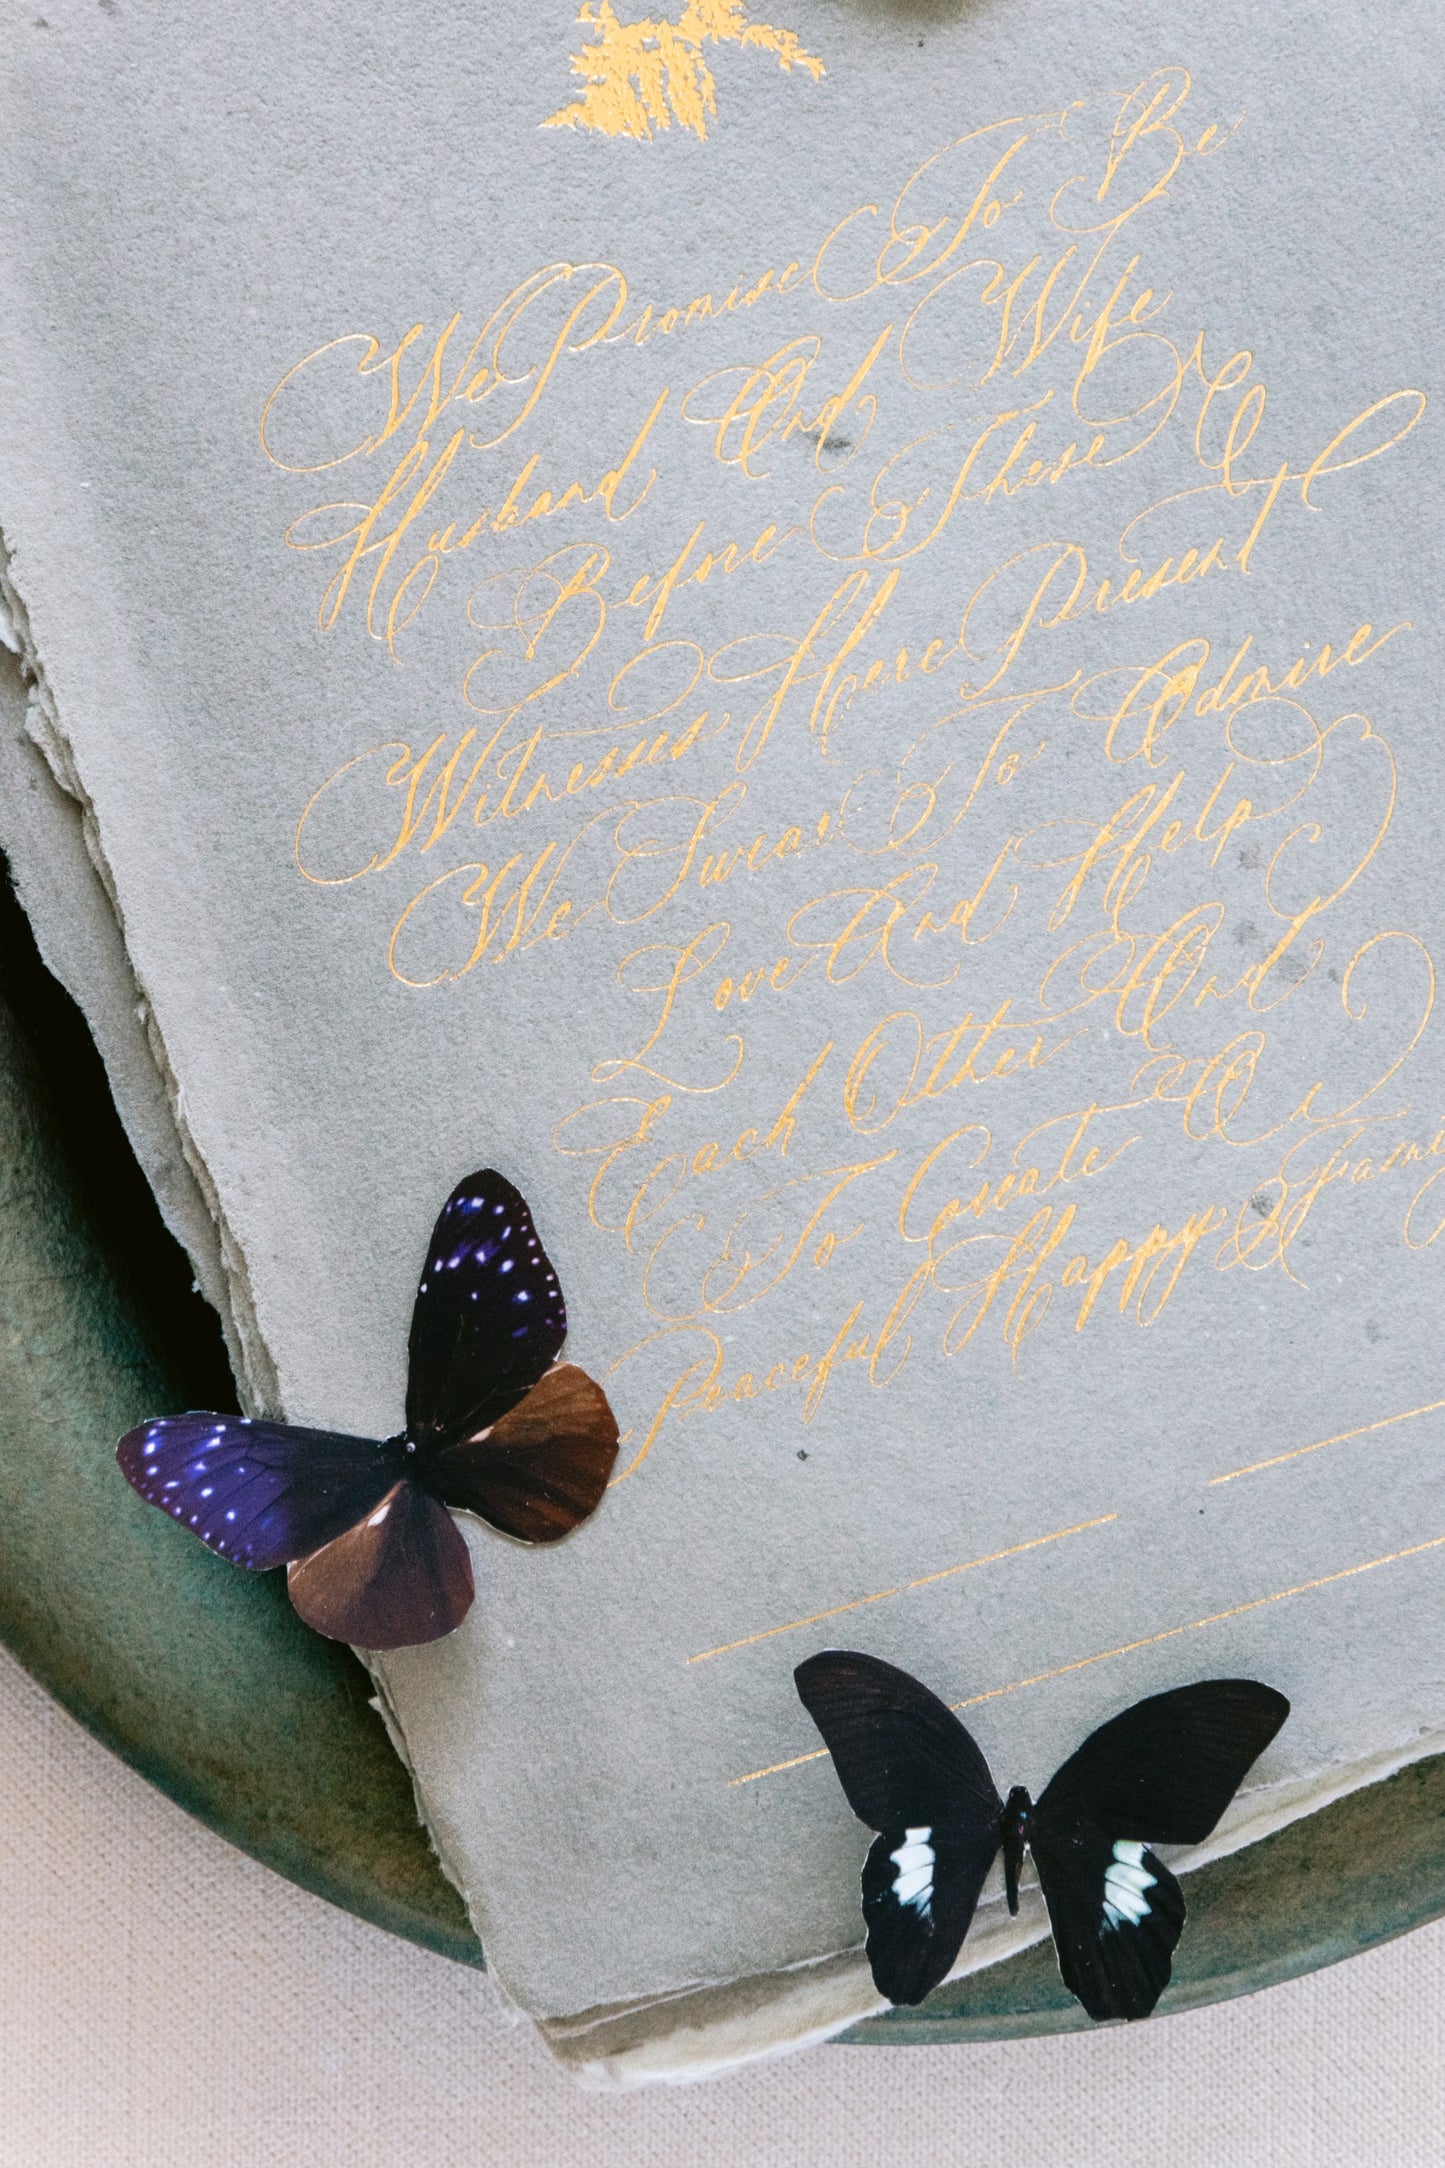 We Promise To Be
Husband And Wife
Before These
Witnesses Here Present
We Swear To Admire
Love And Help
Each Other And
To Create Our
Peaceful Happy Family